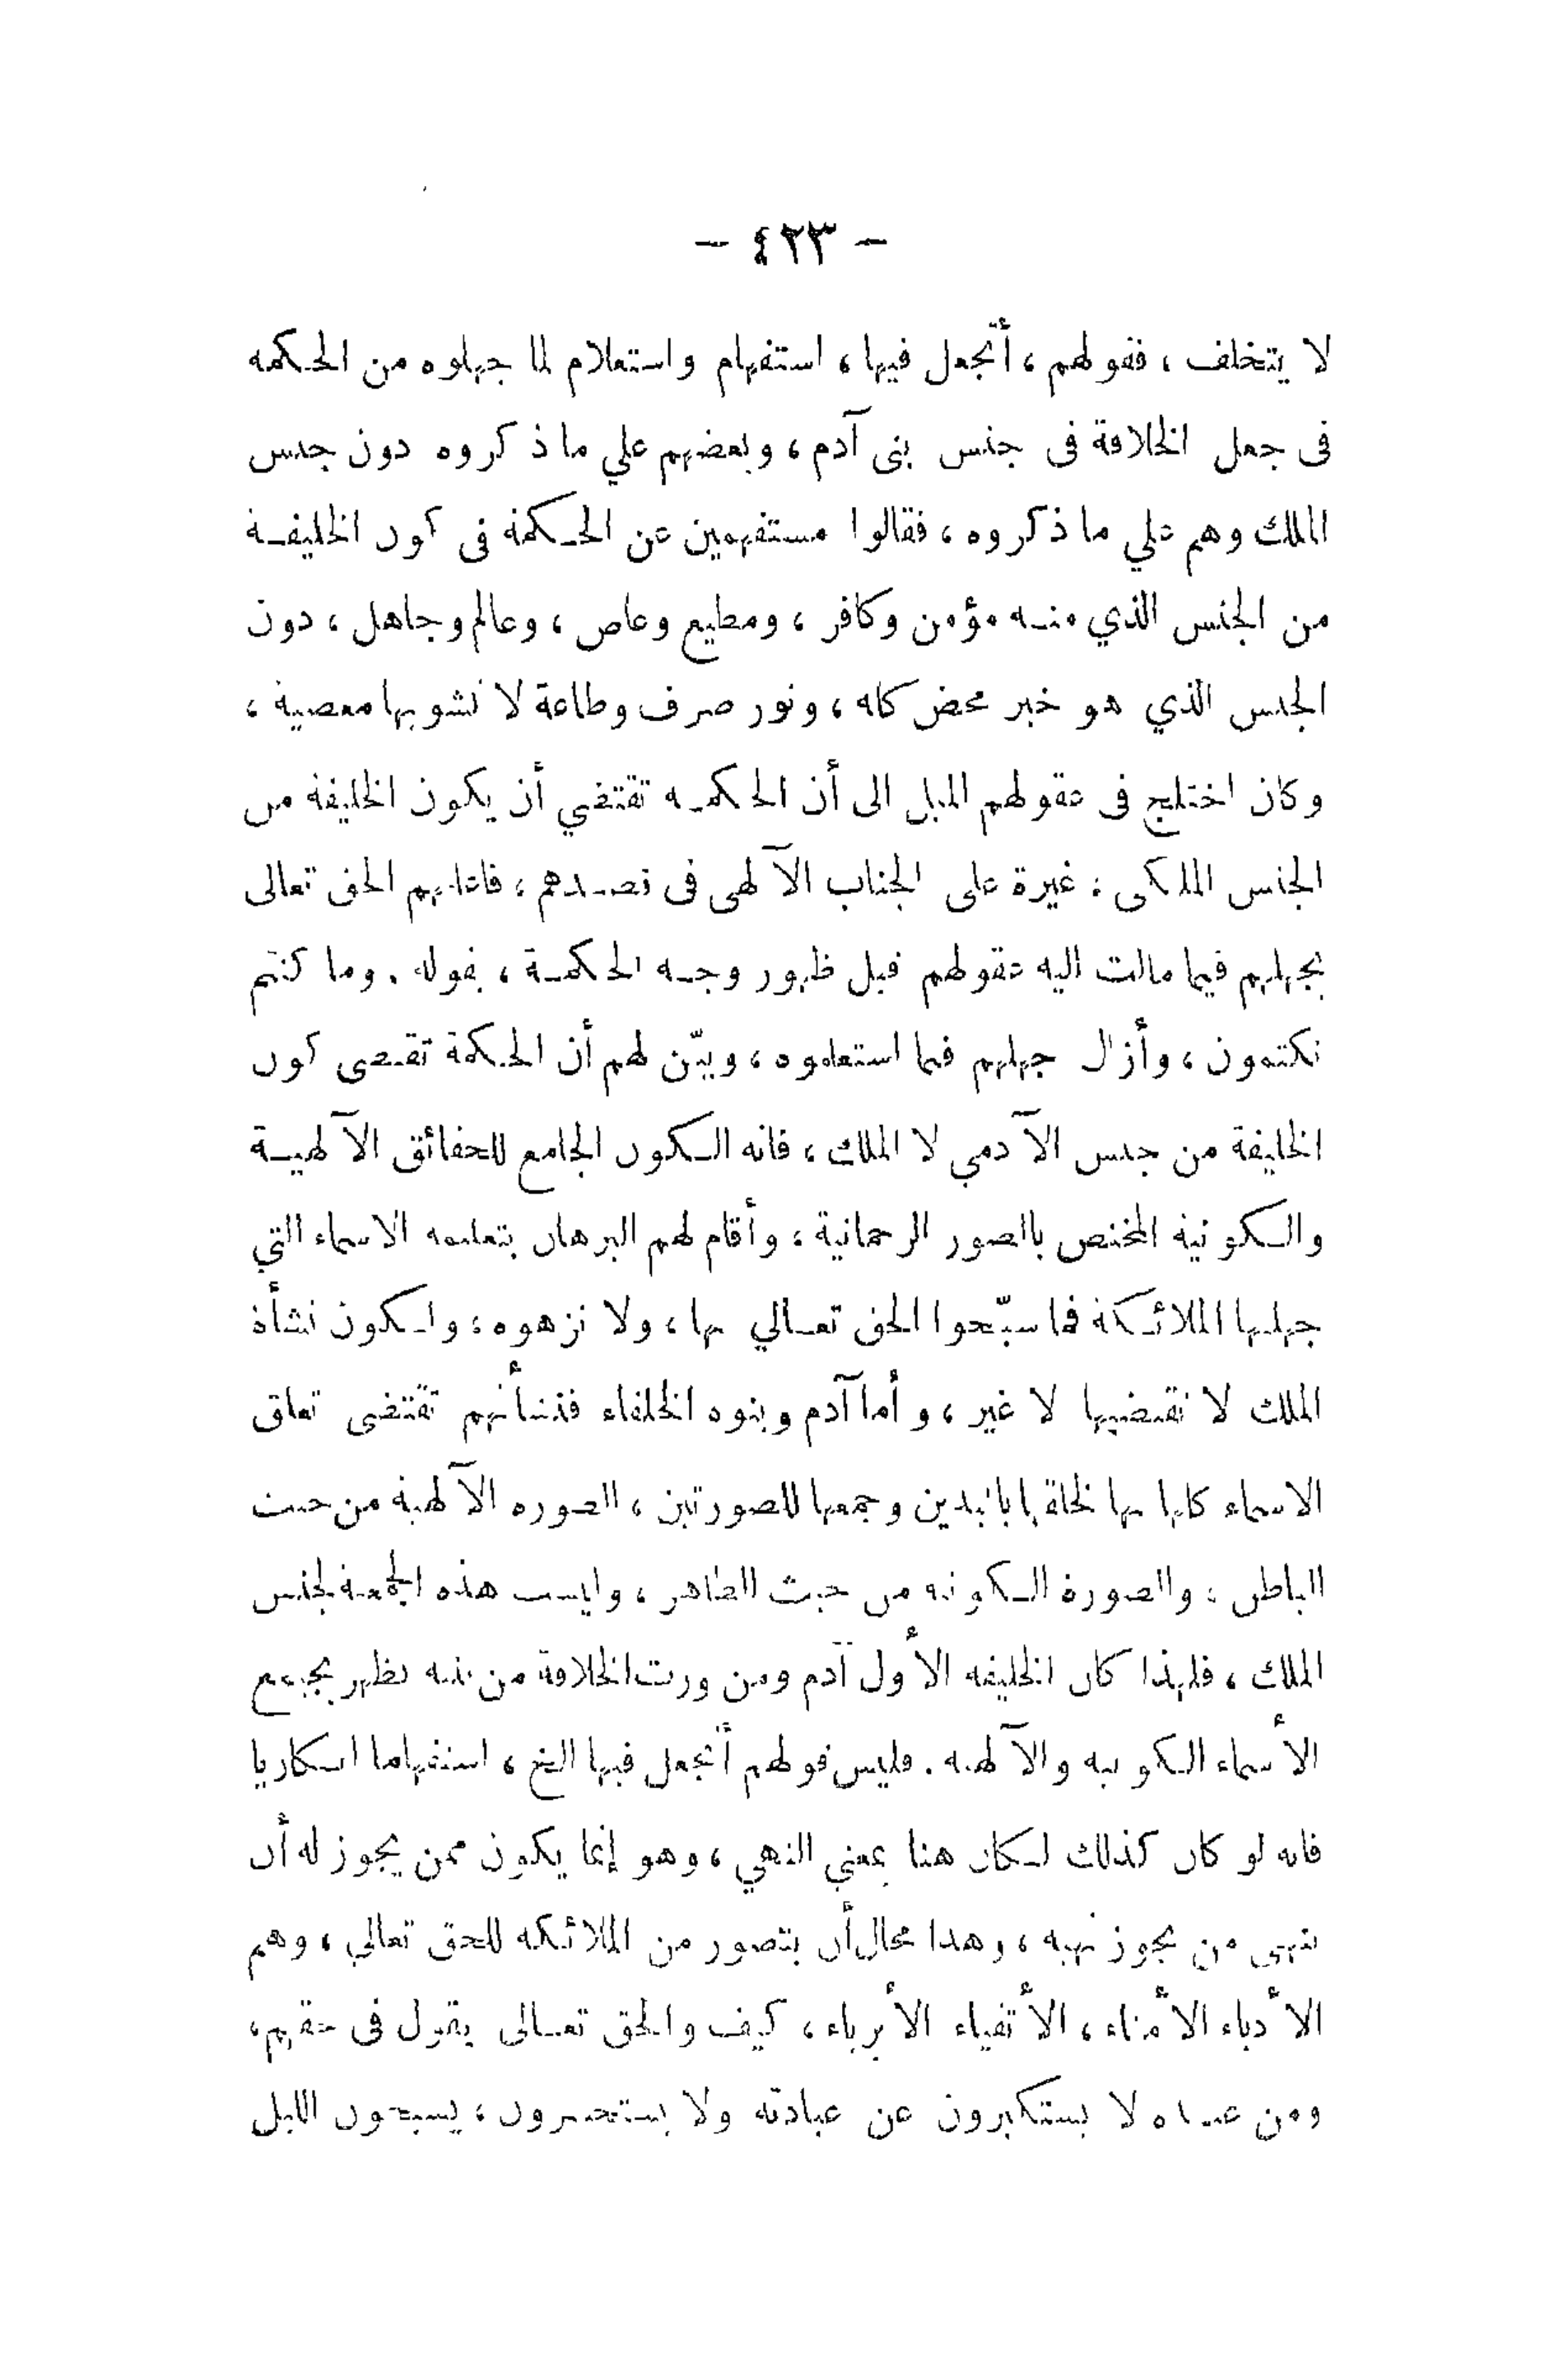 — ٤٢٣ —
لا يتخلف ، فقولهم ، أتجعل فيها ، استفهام واستعلام لما جهلوه من الحكمة
فى جعل الخلافة فى جنس بنى آدم ، وبعضهم علي ما ذكروه دون جنس
الملك وهم علي ما ذكروه ، فقالوا مستفهمين عن الحكمة فى كون الخليفة
من الجنس الذي منه مؤمن وكافر ، ومطيع وعاص ، وعالم وجاهل ، دون
الجنس الذي هو خير محض كله ، ونور صرف وطاعة لا تشوبها معصية ،
وكان اختلج فى عقولهم الميل الى أن الحكمة تقتضي أن يكون الخليفة من
الجنس الملكى ، غيرة على الجناب الآلهى فى قصدهم ، الحق تعالى
بجهلهم فيما مالت اليه عقولهم قبل ظهور وجه الحكمة ، بقوله . وما كنتم
تكتمون ، وأزال جهلهم فيما استعلموه ، وبيّن لهم أن الحكمة تقتضى كون
الخليفة من جنس الآدمي لا الملك ، فانه الكون الجامع للحقائق الآلهية
والكونية المختص بالصور الرحمانية ، وأقام لهم البرهان بتعليمه الاسماء التي
جهلها الملائكة فما سبّحوا الحق تعالي بها ، ولا نزهوه ، ولكون نشأة
الملك لا تقتضيها لا غير ، وأما آدم وبنوه الخلفاء فنشأتهم تقتضى تعلق
الاسماء كلها بها لخلقها باليدين وجمعها للصورتين ، الصورة الآلهية من حيث
الباطن ، والصورة الكونية من حيث الظاهر ، وليست هذه الجمعية لجنس
الملك ، فلهذا كان الخليفة الأول آدم ومن ورث الخلافة من بنيه تظهر بجميع
الأسماء الكونية والآلهية . فليس قولهم أتجعل فيها الخ ، استفهاما انكاريا
فانه لو كان كذلك لكان هنا بمعني النهي ، وهو إنما يكون ممن يجوز له أن
ينهى من يجوز نهيه ، وهذا محال أن يتصور من الملائكة للحق تعالي ، وهم
الأدباء الأمناء ، الأتقياء الأبرياء ، كيف والحق تعالى يقول فى حقهم ،
ومن عنده لا يستكبرون عن عبادته ولا يستحسرون ، يسبحون الليل